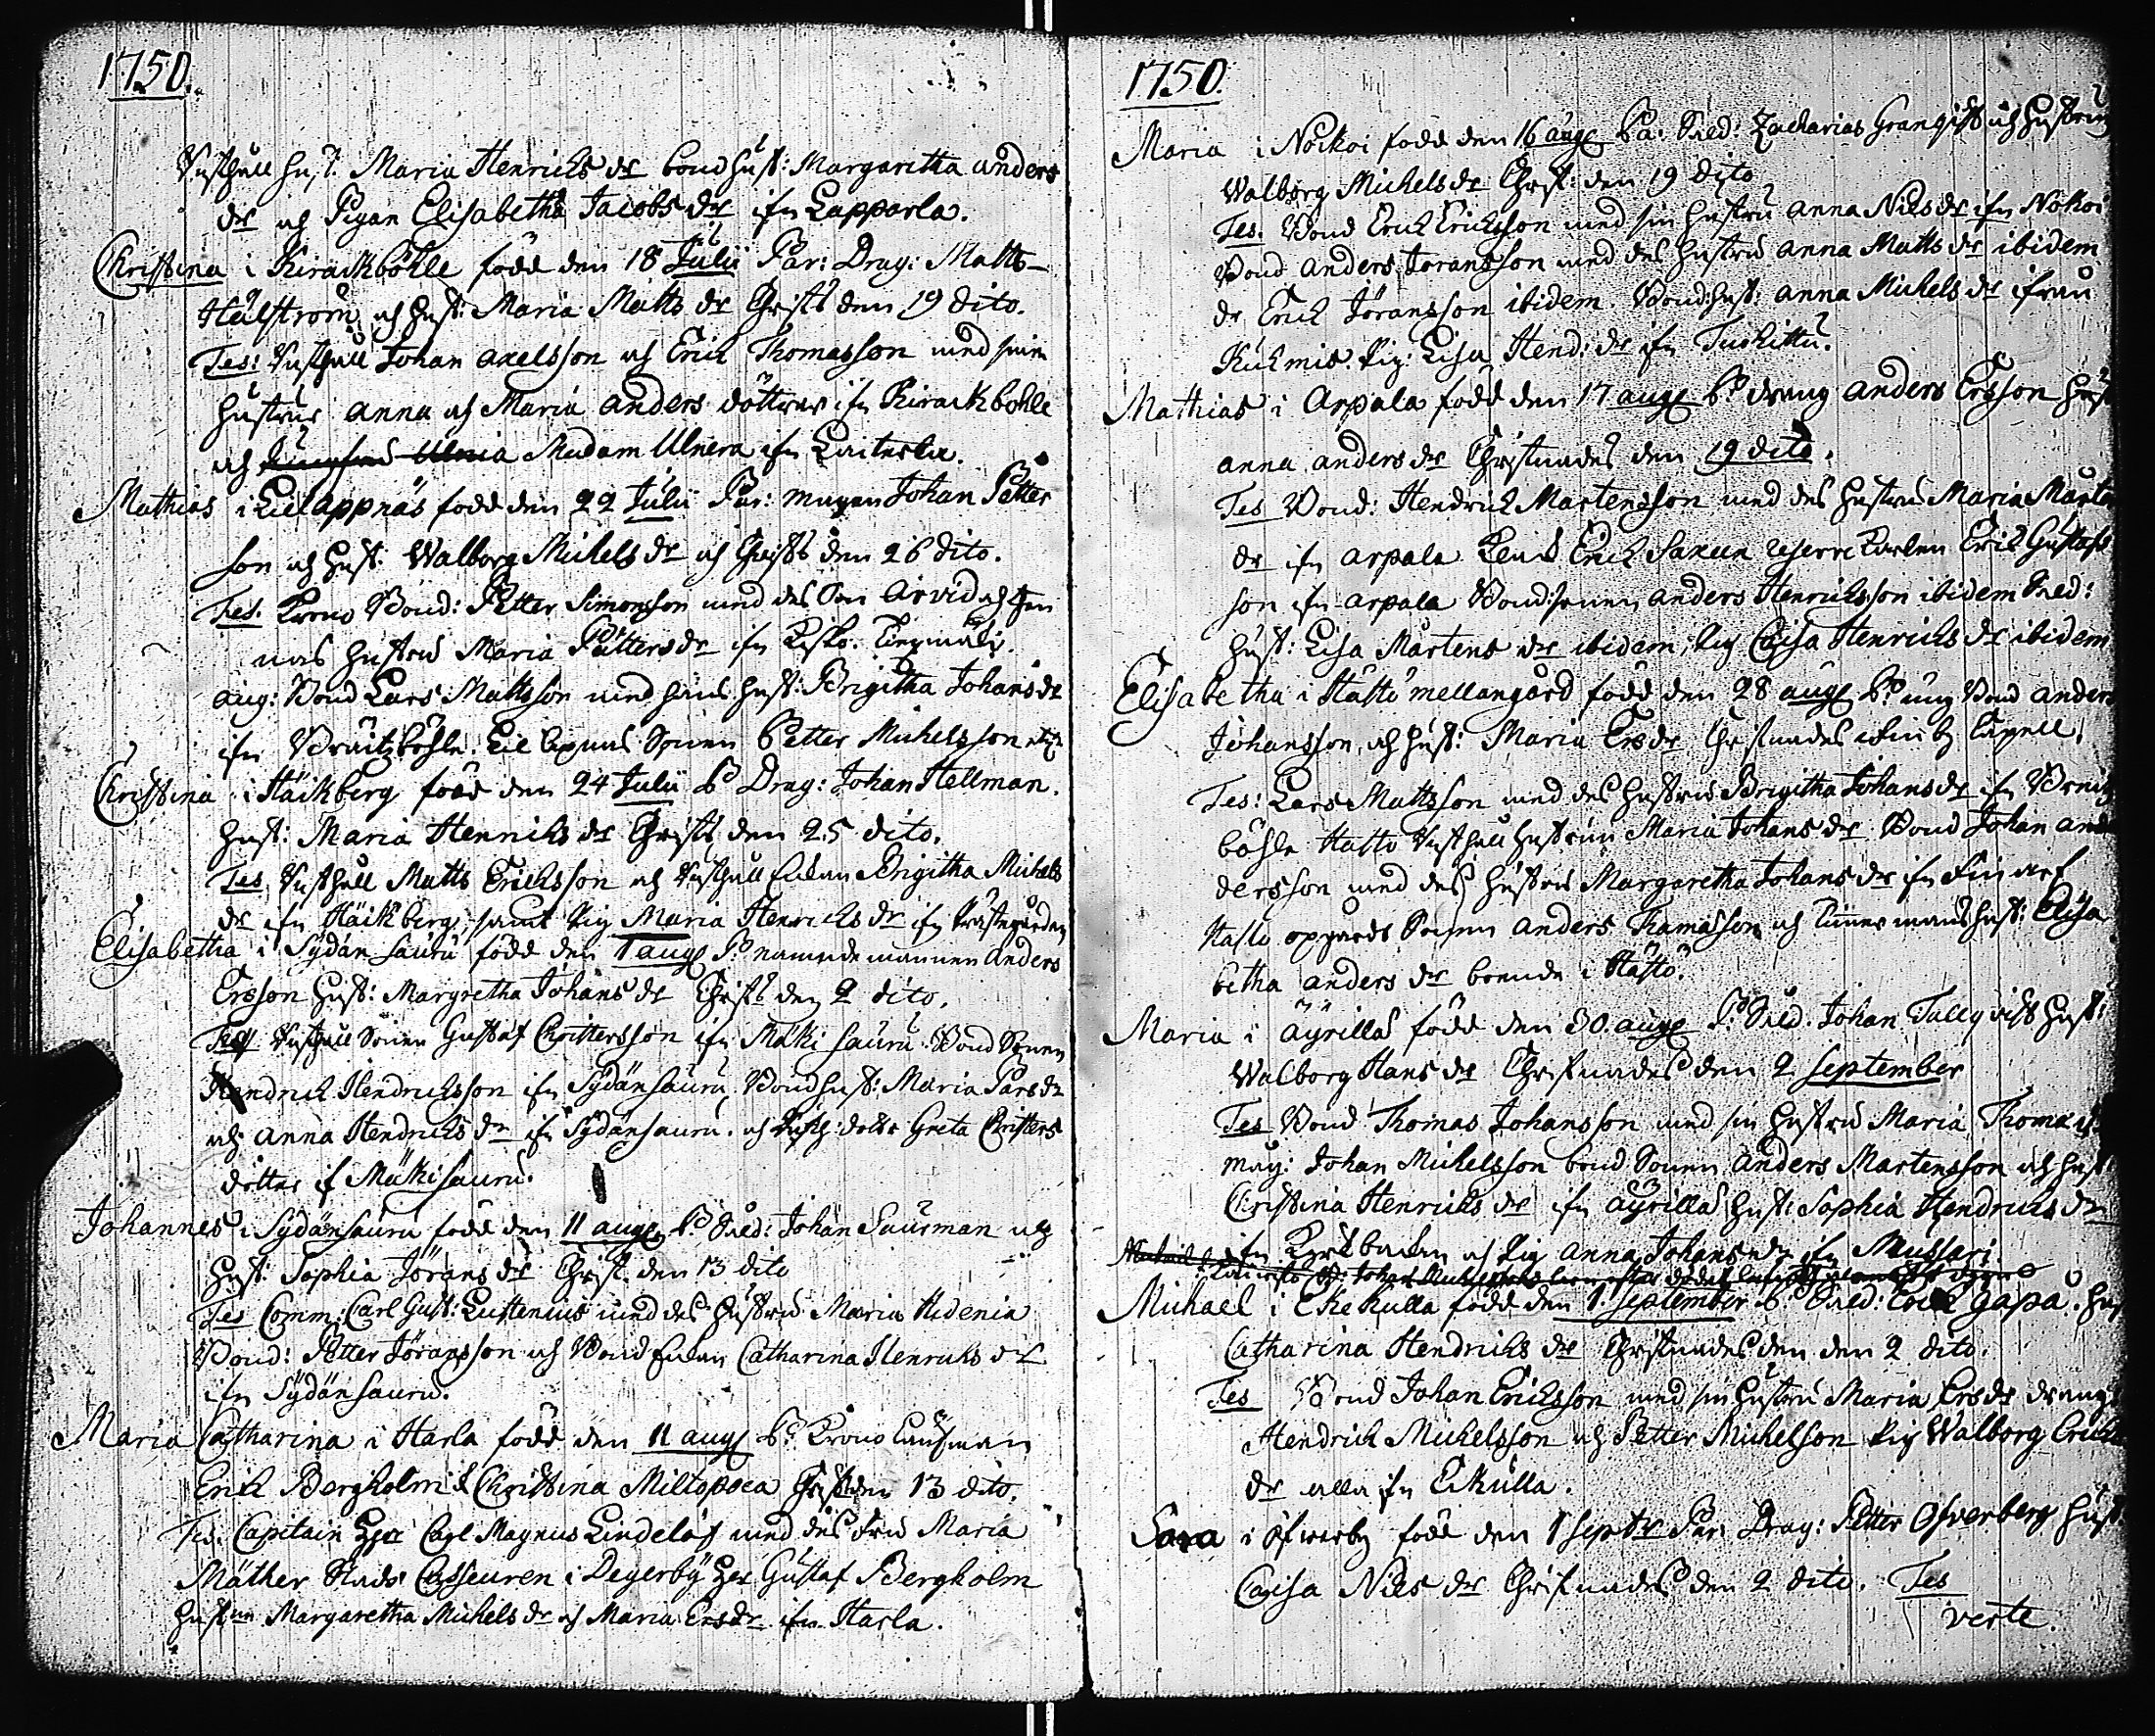 1750.
Rusthåll hust: Maria Henrichs dr bond hust: Margaretha anders
dr och Pigan Elisabetha Jacobs dr ifr Lapparla.
Christina i Kirackböhle född den 18 Julii Par: Drag: Matts
Hälström och hust: Maria Matts dr Christs den 19 dito.
Tes: Rusthåll Johan axelsson och Erich Thomasson med sina
hustrur anna och Maria anders döttrar ifr Kirackböhle
och Madam Ulnera ifr
Mathias i Lillappnäs född den 22 Julii Par: Johan Petter
son och hust: Walborg Michels dr och Christs den 26 dito.
Tes. Krono Bond: Petter Simonsson med des Son Arvid och
hustru Maria Petters dr ifr
Bond Lars Mattsson med hans hust: Brigitha Johans dr
ifr Sonen Petter Michelsson
Christina i Häikberg född den 24 Julii P Drag: Johan Hellman.
hust: Maria Henrichs dr Christs den 25 dito.
Tes. Rusthåll Matts Erichsson och Rusthåll Enkan Brigitha Michels
dr ifr Häikberg, samt Pig Maria Henrichs dr ifr Prästgården
Elisabetha i Sydänsauru född den 1 aug P. nämndemannen Anders
Ersson hust: Margretha Johans dr Christs den 2 dito.
Tes Rusthåll Sonen Gustaf Christersson ifr Mäkisauru. Bond Sonen
Hendrich Hendrichsson ifr Sydänsauru. Bond hust: Maria Lars dr
och anna Hendrichs dr ifr Sydänsauru. och dotter Greta Christers
dotter if Mäkisauru.
Johannes i Sydänsauru född den 11 aug P. Sold: Johan Saurman och
hust: Sophia Jörans dr Christ. den 13 dito
Tes Comm: Carl Gust: Lustenius med des hustru Maria Hidenia
Bond: Petter Jöransson och Bond Enkan Catharina Henrichs dr
ifr Sydänsauru.
Maria Catharina i Harla född den 11 aug P. Krono
Erich Bergholm & Christina Miltopoea Christ den 13 dito.
Tes. Capitain Herr Carl Magnus Lindelöf med des Fru Maria
Mäther Stads Casseuren i Degerby Her Gustaf Bergholm
hustrun Margaretha Michels dr och Maria Ers dr ifr Harla.
1750.
Maria i Nokoi född den 16 aug Pa: Sold: Zacharias Granqvist och hustrun
Walborg Michels dr Christ: den 19 dito
Tes. Bond Erich Erichsson med sin hustru anna Nils dr ifr Nokoi
Bond anders Joransson med des hustru anna Matts dr ibidem
dr Erich Jöransson ibidem. Bond: hust: anna Michels dr ifrån
Kuhmis. Pig: Lisa Hend: dr ifr
Mathias i Arpala född den 17 aug P. dräng anders Ersson hust
anna anders dr Christnades den 19 dito.
Tes Bond: Hendrich Martensson med des hustru Maria Mårtens
dr ifr arpala Erich Saxeen Erich Gustafs
son ifr arpala Bond: sonen anders Henrichsson ibidem Sold:
hust: Lisa Mårtens dr ibidem, Pig Caisa Henrichs dr ibidem
Elisabetha i Hästö mellangård född den 28 aug P. ung Bond anders
Johansson, och hust: Maria Ers dr Christnades i Finby Capell.
Tes: Lars Mattsson med des hustru Brigitha Johans dr ifr
böhle Hästö Rusthåll hustrun Maria Johans dr Bond Johan an
dersson med des hustru Margaretha Johans dr ifr
Hästö opgårds Sonen anders Thomasson och hust: Elisa
betha anders dr boende i Hästö.
Maria i äyrilla född den 30. aug P. Sold. Johan Tallqvist hust:
Walborg Hans dr Christnades den 2 September
Tes Bond Thomas Johansson med sin hustru Maria Thomas
mag: Johan Michelsson bond Sonen Anders Martensson och hust
Christina Henrichs dr ifr äyrilla hust: Sophia Hendrichs dr
ifr Kyrkbacken och Pig anna Johans dr ifr Mussari
Michael i Ekekulla född den 1. September P. Sold: Erich Gapa. hust
Catharina Hendrichs dr Christnades den den 2 dito.
Tes Bond Johan Erichsson med sin hustru Maria Ers dr dräng:
Hendrich Michelsson och Petter Michelson Pig Walborg Erichs
dr alla ifr Eikulla.
Sara i Öfwerby född den 1 Septr Par: Drag: Petter Öfverberg hust
Caisa Nils dr Christnades den 2 dito. Tes
verte.